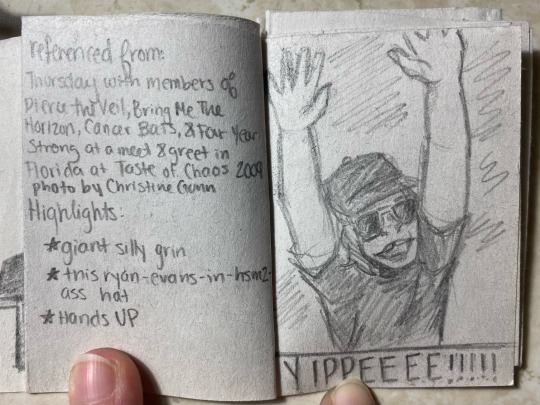 referenced from:
Thursday with members of
Pierce the Veil, Bring Me The
Horizon, Cancer Bats, & Four Year
Strong at a meet & greet in
Florida at Taste of Chaos 2009
photo by Christine Gunn
Highlights:
*giant silly grin
*this ryan-evans-in-hsm2-
ass hat
*Hands UP
YIPPEEEE!!!!!